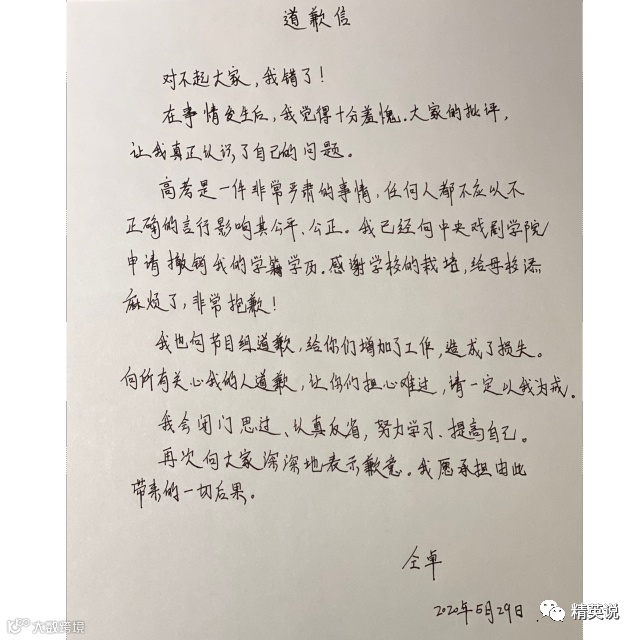 道歉信
对不起大家，我错了！
在事情发生后，我觉得十分羞愧。大家的批评，
让我真正认识了自己的问题。
高考是一件非常严肃的事情，任何人都不应以不
正确的言行影响其公平、公正。我已经向中央戏剧学院
申请撤销我的学籍学历。感谢学校的栽培，给母校添
麻烦了，非常抱歉！
我也向节目组道歉，给你们增加了工作，造成了损失。
向所有关心我的人道歉，让你们担心难过，请一定以我为戒。
我会闭门思过、认真反省，努力学习、提高自己。
再次向大家深深地表示歉意。我愿承担由此
带来的一切后果。
仝卓
2020年5月29日
大数跨境
精英说